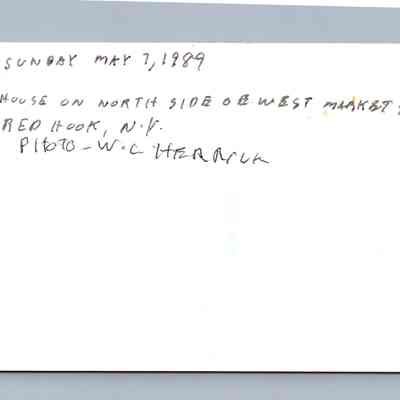 SUNDAY MAY 7, 1989
HOUSE ON NORTH SIDE OF WEST MARKET
RED HOOK, N.Y.
PHOTO - W.C HERRICK